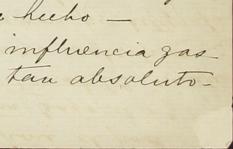 hecho —
influencia gas
tan absoluto-